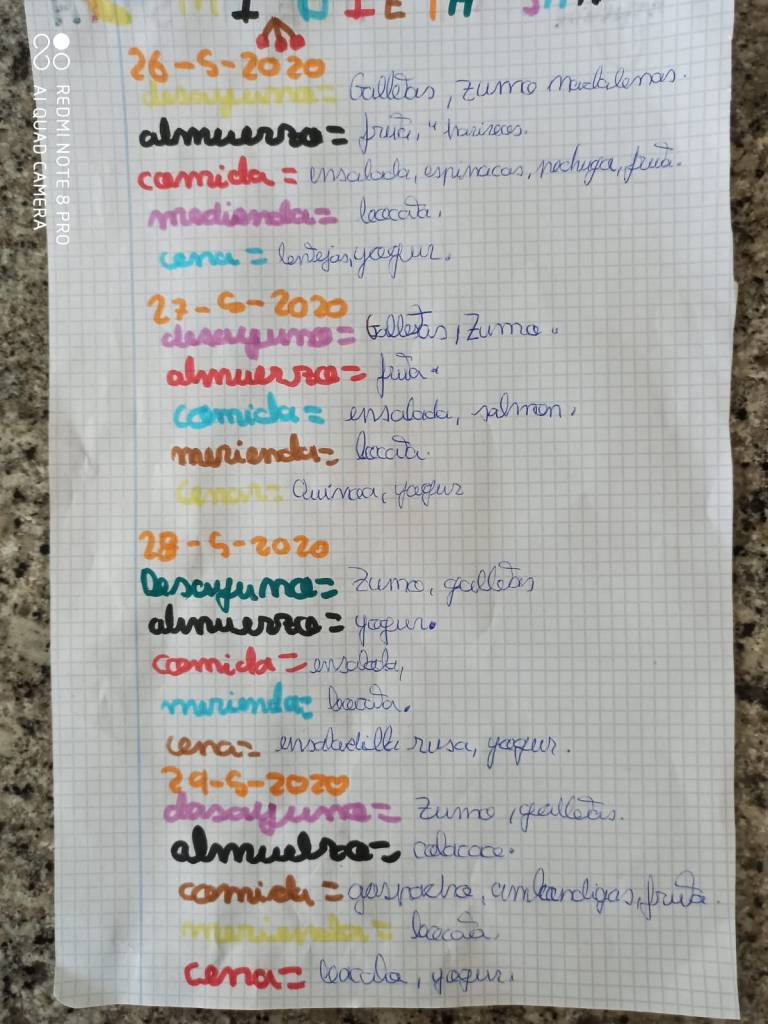 MI DIETA
26-5-2020
desayuno= Galletas, zumo madalenas.
almuerzo= fruta,
comida= ensalada, espinacas, pechuga, fruta.
medienda= bocata.
cena= lentejas, yogur.
27-5-2020
desayuno= Galletas, Zumo.
almuerzo= fruta.
comida= ensalada, salmon.
merienda= bocata.
cenar= Quinoa, yogur
28-5-2020
Desayuno= Zumo, galletas
almuerzo= yogur.
comida= ensalada,
merienda= bocata.
cena= ensaladilla rusa, yogur.
29-5-2020
dasayuno= Zumo, galletas.
almuelzo= colacoce.
comida= gaspacho, fruta.
merienda= bocata.
cena= yogur.
REDMI NOTE 8 PRO
AI QUAD CAMERA